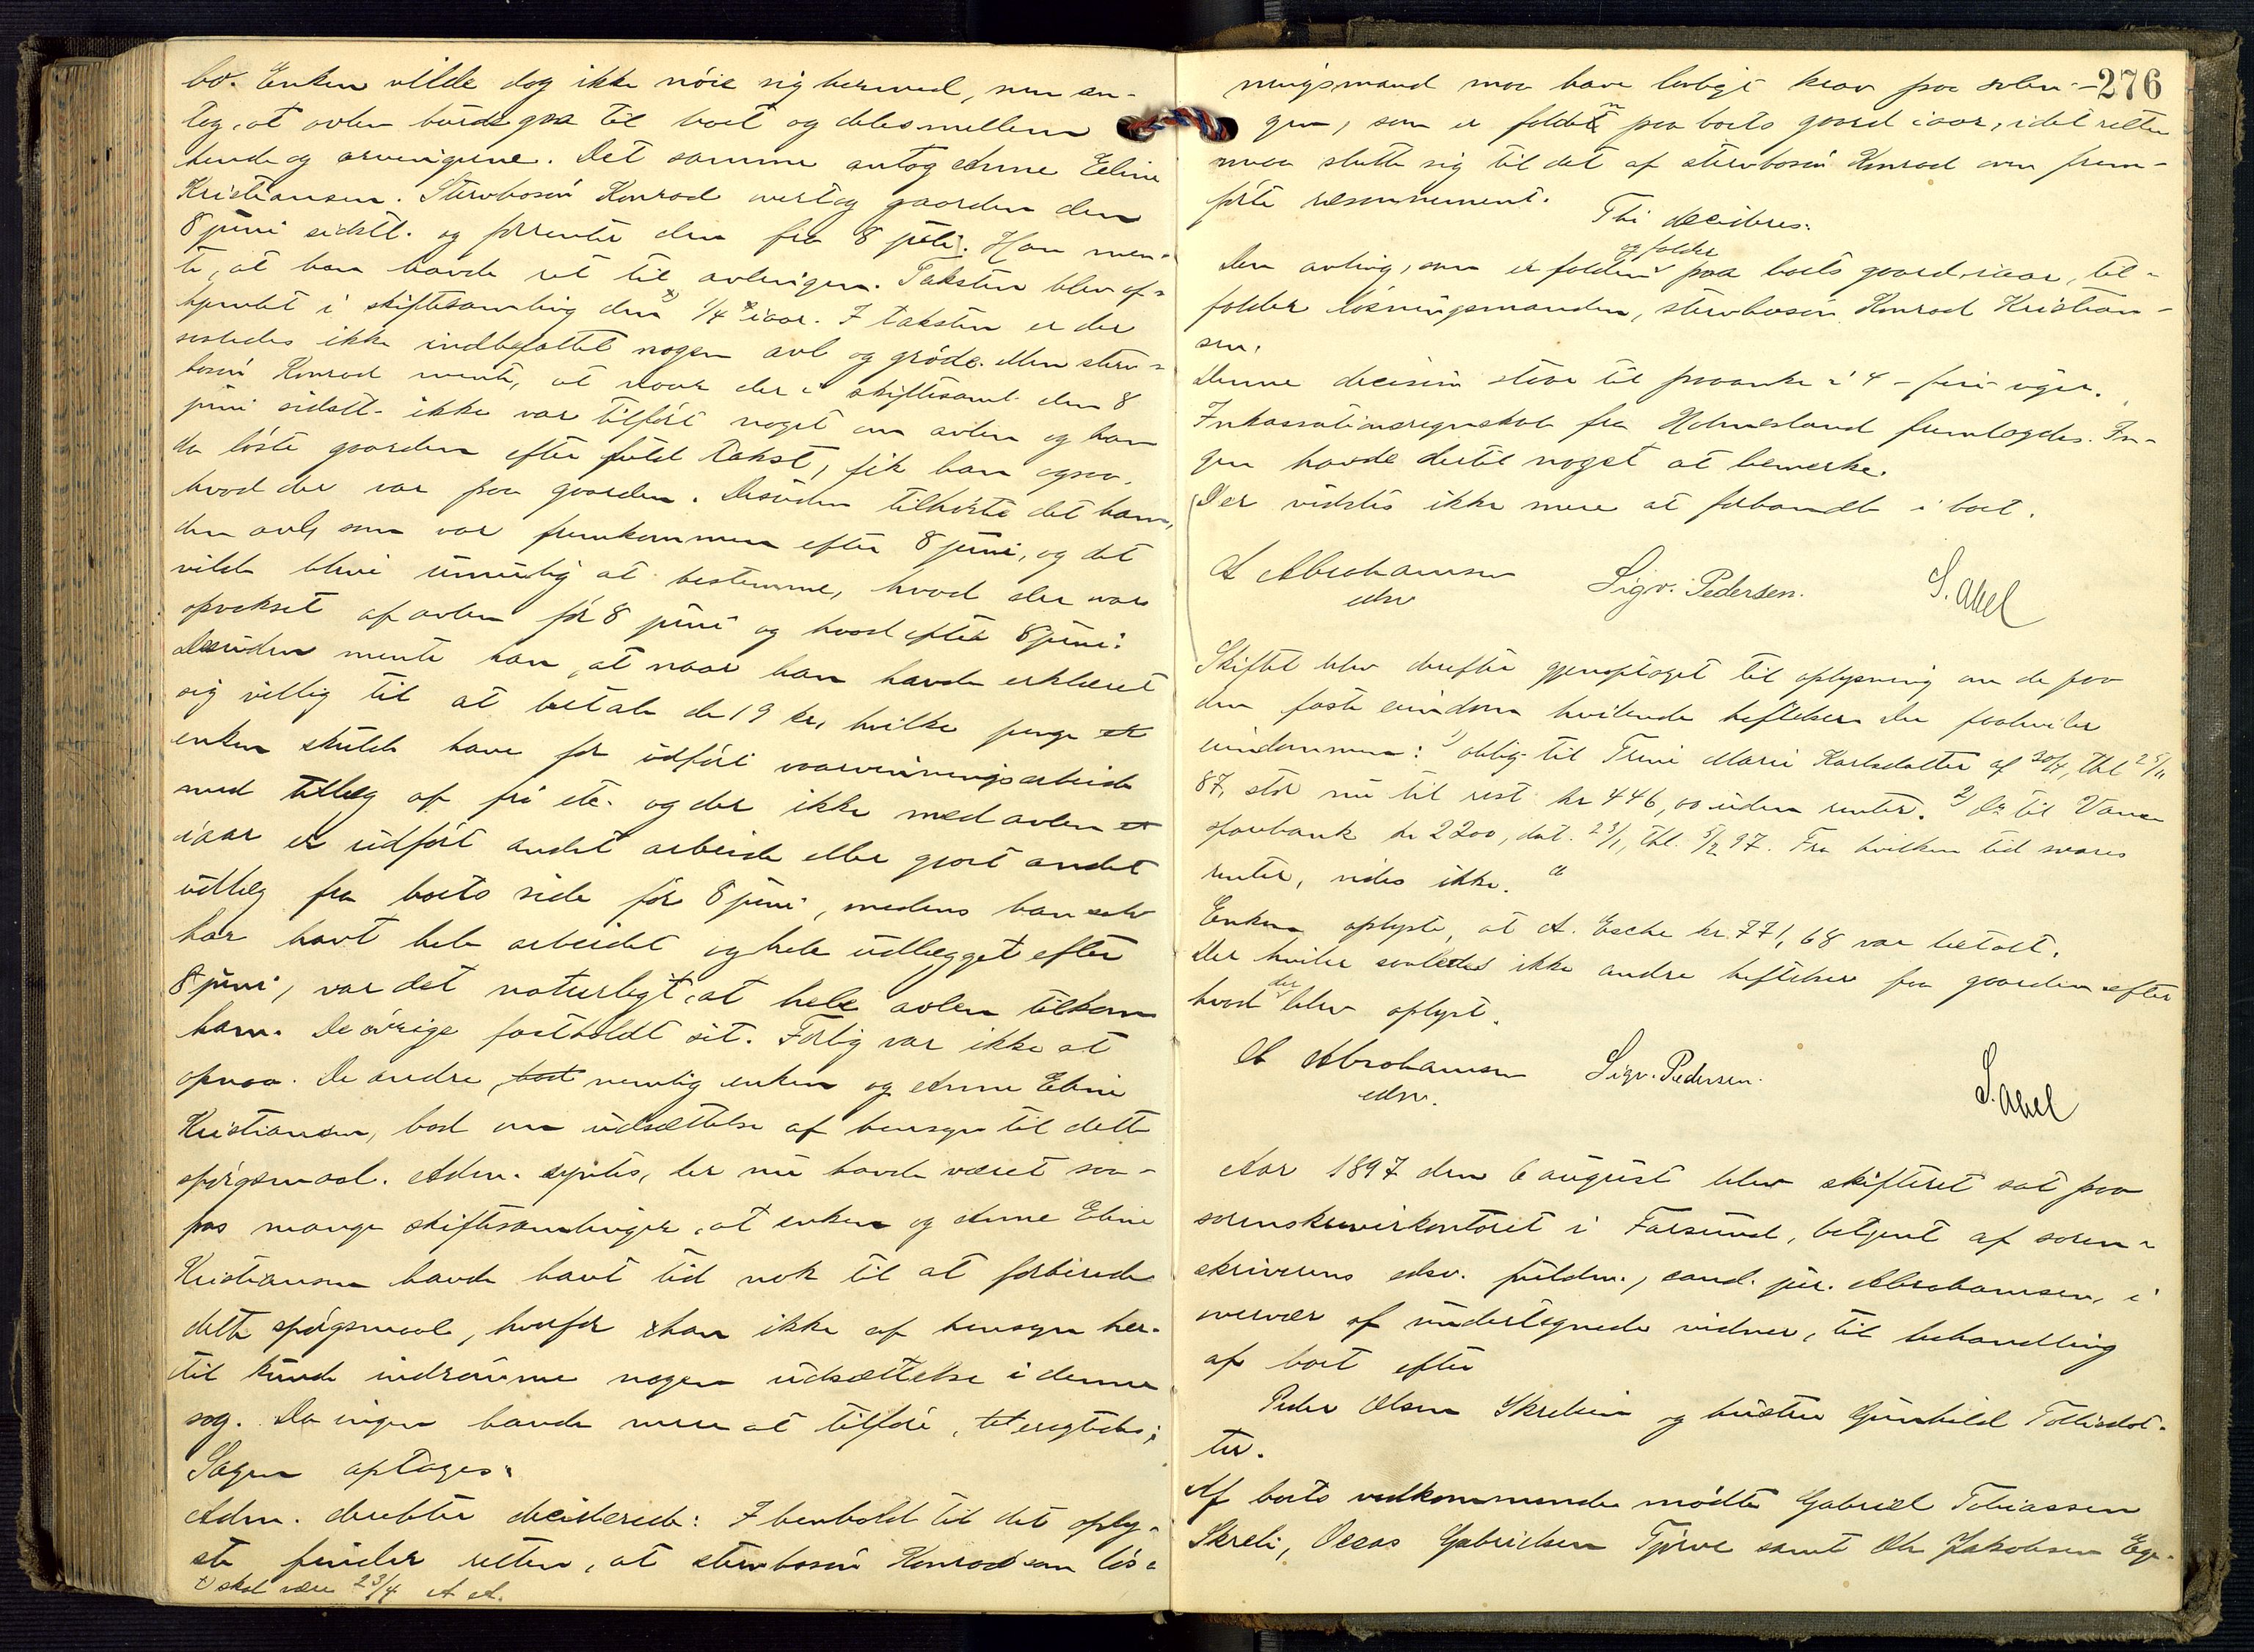 bo. Enken vilde dog ikke nöie sig hermed, men an-
tog, at avlen burde gaa til boet og deles mellem
hende og arvingerne. Det samme antog Anne Eline
Kristiansen. Stervbosön Konrad overtog gaarden den
8 juni sidstl. og forrenter den fra 8 juli. Han men-
te, at han havde ret til avlingen. Taksten blev af-
hjemlet i skiftesamling den x) 1/4 iaar. I taksten er der
saaledes ikke indbefattet nogen avl og gröde. Men sterv-
bosön Konrad mente, at naar der i skiftesaml. den 8
juni sidstl. ikke var tilfört noget om avlen og han
da löste gaarden efter fuld takst, fik han ogsaa,
hvad der var paa gaarden. Desuden tilhörte det ham,
den avl, som var fremkommen efter 8 juni, og det
vilde blive umulig at bestemme, hvad der var
opvokset af avlen för 8 juni og hvad efter 8 juni.
Desuden mente han, at naar han havde erklæret
sig villig til at betale de 19 kr, hvilke penge
enken skulde have for udfört vaarvinningsarbeide
med tillæg af frö etc. og der ikke med avlen
iaar er udfört andet arbeide eller gjort andet
udlæg fra boets side för 8 juni, medens han selv
har havt hele arbeidet og hele udlægget efter
8 juni, var det naturligt, at hele avlen tilkom
ham. De övrige fastholdt sit. Forlig var ikke at
opnaa. De andre bad nemlig enken og Anne Eline
Kristiansen, bad om udsættelse af hensyn til dette
spörgsmaal. Adm. syntes, der nu havde været saa-
pas mange skiftesamlinger, at enken og Anne Eline
Kristiansen havde havt tid nok til at forberede
dette spörgsmaal, hvorfor han ikke af hensyn her-
til kunde indrömme nogen udsættelse i denne
sag. Da ingen havde mere at tilföre, eragtedes;
Sagen optages.
Adm. derefter deciderede: I henhold til det oply-
ste finder retten, at stervbosön Konrad som lös-
x) skal være 23/4 A A.
276
ningsmand maa have lovligt krav paa avlin-
gen, som er falden paa boets gaard iaar, idet retten
maa slutte sig til det af stervbosön Konrad oven frem-
förte ræsonnement.
Thi decideres:
Den avling, som er falden og falder paa boets gaard iaar, til-
falder lösningsmanden, stervbosön Konrad Kristian-
sen.
Denne decision staar til paaanke i 4 - fire - uger.
Inkassationsregnskab fra Holmesland fremlagdes. In-
gen havde dertil noget at bemerke.
Der vidstes ikke mere at forhandle i boet.
A Abrahamsen Sigv. Pedersen. S. Abel
edsv
Skiftet blev derefter gjenoptaget til oplysning om de paa
den faste eiendom hvilende heftelser. Der paahviler
eiendommen: 1) oblig. til Trine Marie Karlsdatter af 30/4, tbl. 25/11
87, stor nu til rest kr 446,00 uden renter. 2) Do til Vanse
sparebank kr 2200, dat. 23/1, tbl. 5/2 97. Fra hvilken tid svares
renter, vides ikke.
Enken oplyste, at A. Esche kr. 771,68 var betalt.
Der hviler saaledes ikke andre heftelser paa gaarden efter
hvad der blev oplyst.
A Abrahamsen Sigv. Pedersen. S. Abel
edsv.
Aar 1897 den 6 august blev skifteret sat paa
sorenskriverkontoret i Farsund, betjent af soren-
skriverens edsv. fuldm., cand. jur. Abrahamsen, i
overvær af undertegnede vidner, til behandling
af boet efter
Peder Olsen Skreli og hustru Gunhild Tollisdat-
ter.
Af boets vedkommende mödte Gabriel Tobiassen
Skreli, Gabrielsen Tjörve samt Ole Jakobsen Ege-